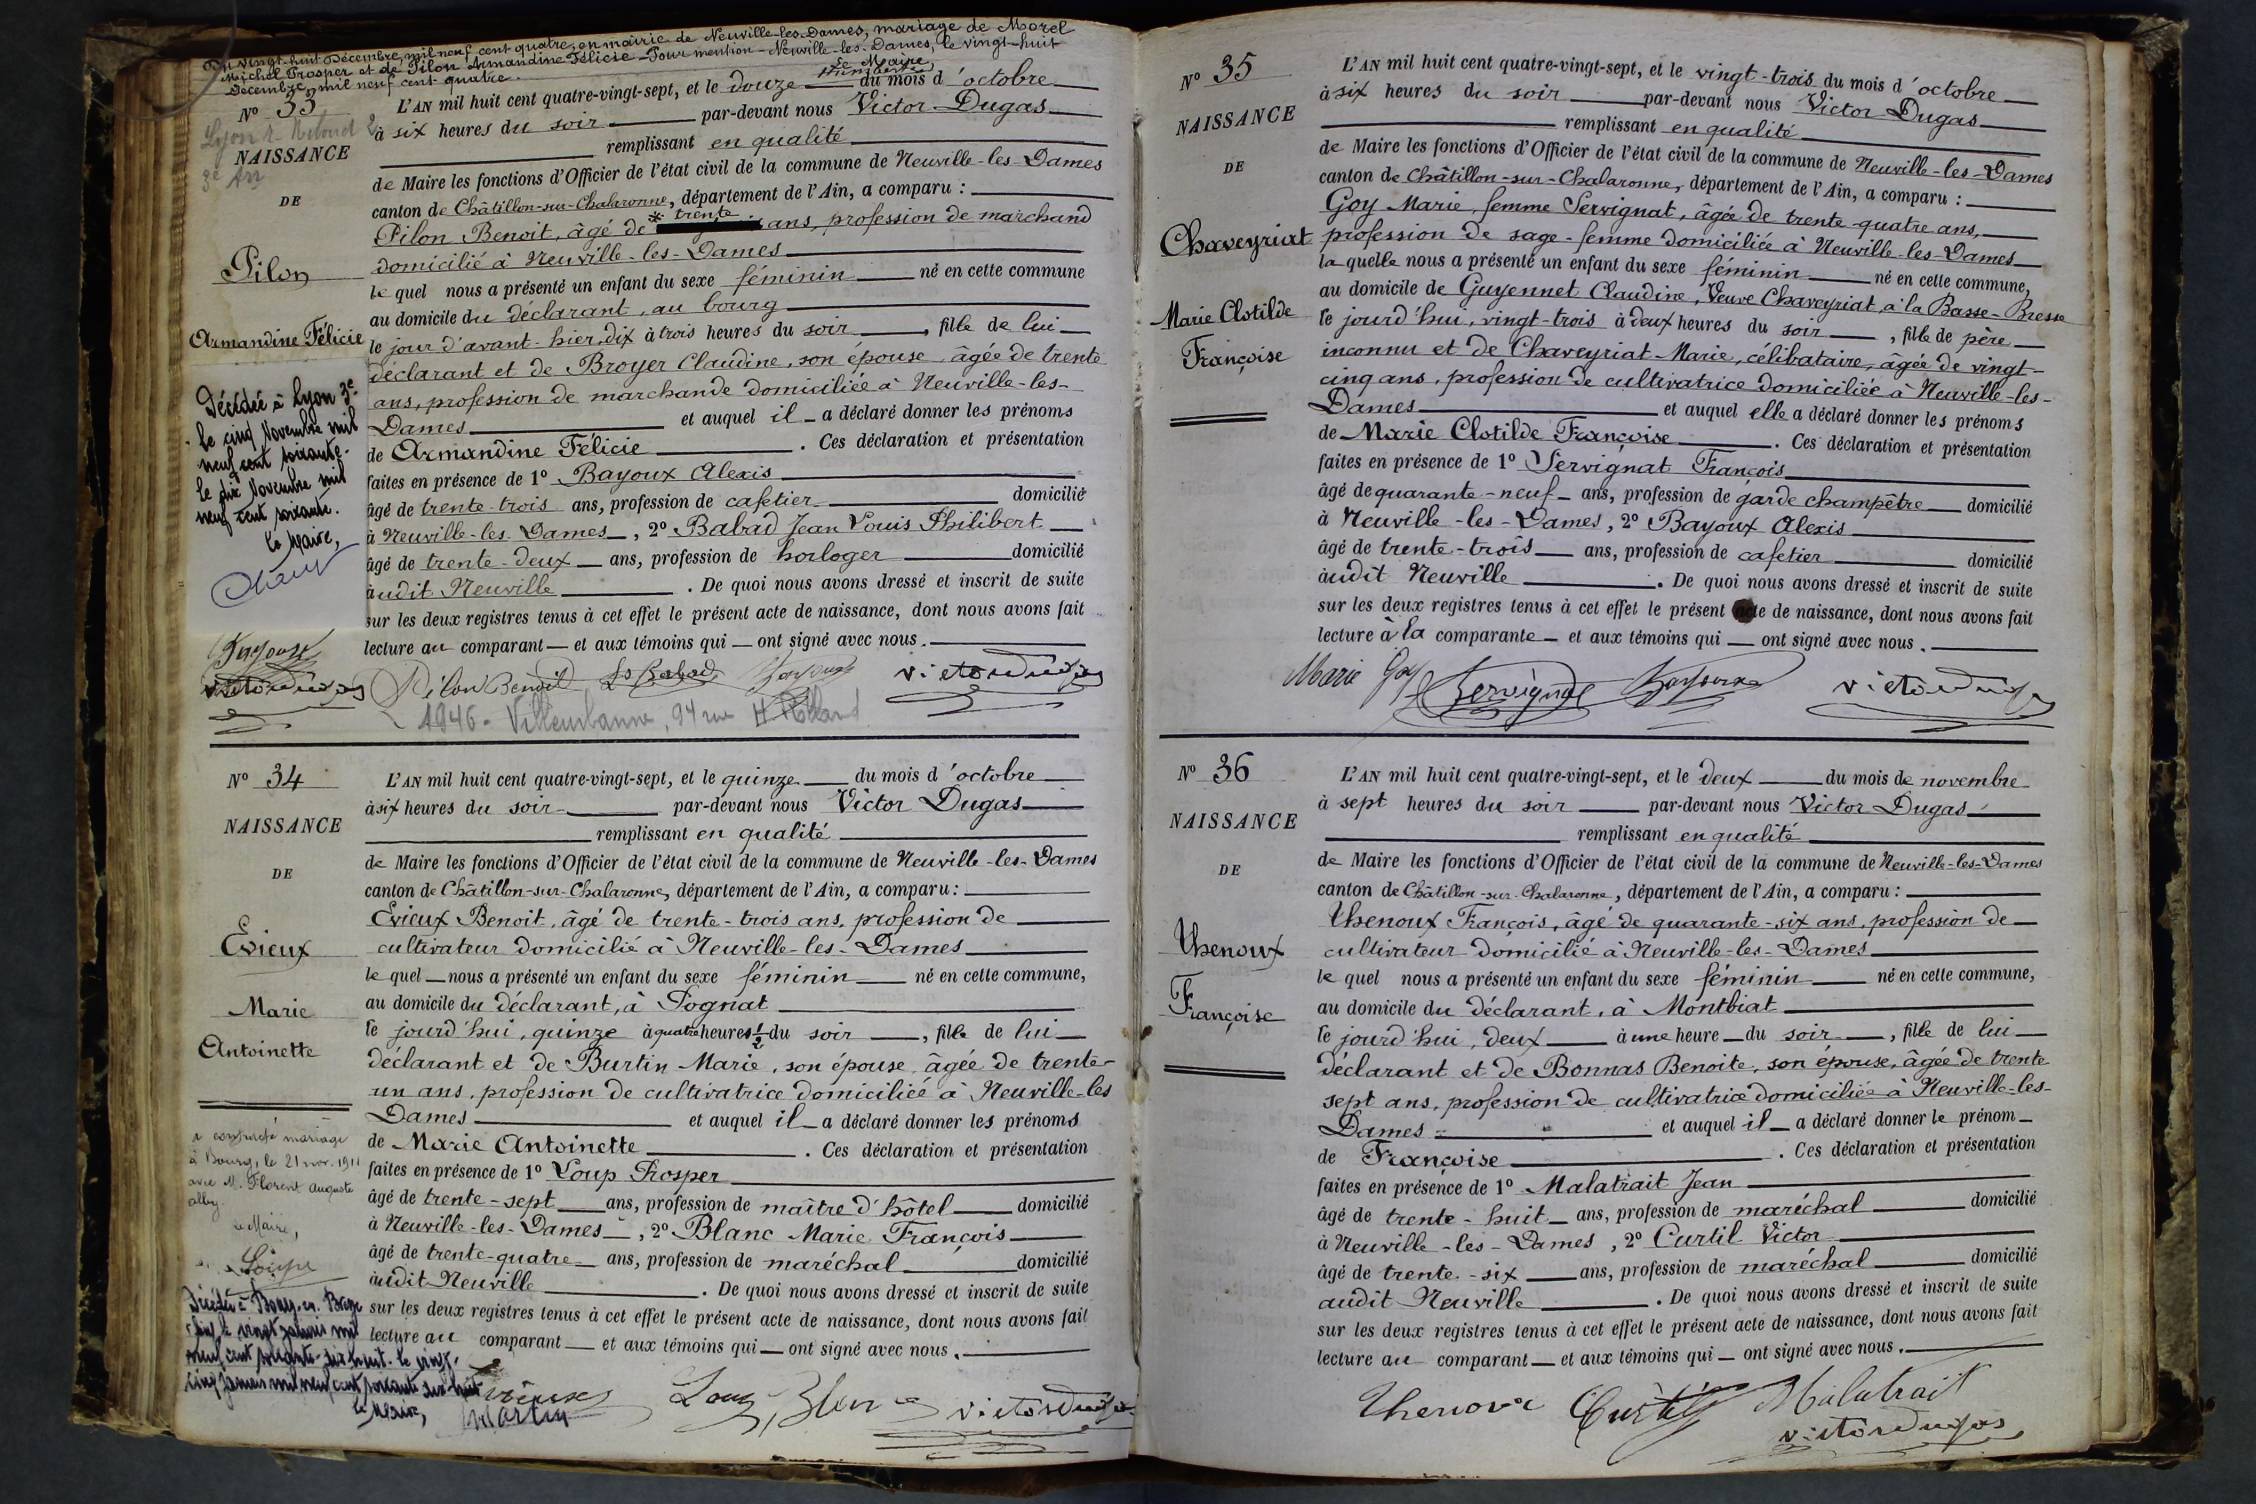 Du vingt-huit Décembre, mil neuf cent quatre, en mairie de Neuville-les-Dames, mariage de Morel
Michel Prosper et de Pilon Armandine Félicie - Pour mention - Neuville-les-Dames, le vingt-huit
Décembre, mil neuf cent quatre.
Le Maire,
N° 33
Lyon
3e Arr
NAISSANCE
DE
Pilon
Armandine Félicie
Décédée à Lyon 3e
le cinq Novembre mil
neuf cent soixante.
le dix Novembre mil
neuf cent soixante.
Le Maire,
L'AN mil huit cent quatre-vingt-sept, et le douze du mois d'octobre
à six heures du soir par-devant nous Victor Dugas
remplissant en qualité
de Maire les fonctions d'Officier de l'état civil de la commune de Neuville-les-Dames
canton de Châtillon-sur-Chalaronne, département de l'Ain, a comparu :
Pilon Benoit, âgé de * trente ans, profession de marchand
domicilié à Neuville-les-Dames
le quel nous a présenté un enfant du sexe féminin né en cette commune
au domicile du déclarant, au bourg
le jour d'avant-hier, dix à trois heures du soir, fille de lui
déclarant et de Broyer Claudine, son épouse âgée de trente
ans, profession de marchande domiciliée à Neuville-les-
Dames et auquel il a déclaré donner les prénoms
de Armandine Félicie. Ces déclaration et présentation
faites en présence de 1° Bayoux Alexis
âgé de trente-trois ans, profession de cafetier domicilié
à Neuville-les-Dames, 2° Babad Jean Louis Philibert
âgé de trente-deux ans, profession de horloger domicilié
audit Neuville. De quoi nous avons dressé et inscrit de suite
sur les deux registres tenus à cet effet le présent acte de naissance, dont nous avons fait
lecture au comparant et aux témoins qui ont signé avec nous.
Bayoux
victor dugas Pilon Benoit Ls Babad Bayoux victor dugas
1946 - Villeurbanne, 94 rue H. Rolland
N° 34
NAISSANCE
DE
Evieux
Marie
Antoinette
a contracté mariage
à Bourg, le 21 nov. 1911
avec M. Florent Auguste
Le Maire,
Décédée à Bourg-en-Bresse
le vingt janvier mil
neuf cent soixante-dix huit. le vingt-
cinq janvier mil neuf cent soixante dix-huit
Le Maire,
L'AN mil huit cent quatre-vingt-sept, et le quinze du mois d'octobre
à six heures du soir par-devant nous Victor Dugas
remplissant en qualité
de Maire les fonctions d'Officier de l'état civil de la commune de Neuville-les-Dames
canton de Châtillon-sur-Chalaronne, département de l'Ain, a comparu :
Evieux Benoit, âgé de trente-trois ans, profession de
cultivateur domicilié à Neuville-les-Dames
le quel nous a présenté un enfant du sexe féminin né en cette commune,
au domicile du déclarant, à Pognat
le jourd'hui, quinze à quatre heures 1/2 du soir, fille de lui
déclarant et de Burtin Marie, son épouse âgée de trente-
un ans, profession de cultivatrice domiciliée à Neuville-les
Dames et auquel il a déclaré donner les prénoms
de Marie Antoinette. Ces déclaration et présentation
faites en présence de 1° Loup Prosper
âgé de trente-sept ans, profession de maître d'hôtel domicilié
à Neuville-les-Dames, 2° Blanc Marie François
âgé de trente-quatre ans, profession de maréchal domicilié
audit Neuville. De quoi nous avons dressé et inscrit de suite
sur les deux registres tenus à cet effet le présent acte de naissance, dont nous avons fait
lecture au comparant et aux témoins qui ont signé avec nous.
Evieux Loup Blanc victor dugas
Martin
N° 35
NAISSANCE
DE
Chaveyriat
Marie Clotilde
Françoise
L'AN mil huit cent quatre-vingt-sept, et le vingt-trois du mois d'octobre
à six heures du soir par-devant nous Victor Dugas
remplissant en qualité
de Maire les fonctions d'Officier de l'état civil de la commune de Neuville-les-Dames
canton de Châtillon-sur-Chalaronne, département de l'Ain, a comparu :
Goy Marie, femme Servignat, âgée de trente-quatre ans,
profession de sage-femme domiciliée à Neuville-les-Dames
la quelle nous a présenté un enfant du sexe féminin né en cette commune,
au domicile de Guyennet Claudine, Veuve Chaveyriat, à la Basse-Bresse
le jourd'hui, vingt-trois à deux heures du soir, fille de père
inconnu et de Chaveyriat Marie, célibataire, âgée de vingt-
cinq ans, profession de cultivatrice domiciliée à Neuville-les-
Dames et auquel elle a déclaré donner les prénoms
de Marie Clotilde Françoise. Ces déclaration et présentation
faites en présence de 1° Servignat François
âgé de quarante-neuf ans, profession de garde champêtre domicilié
à Neuville-les-Dames, 2° Bayoux Alexis
âgé de trente-trois ans, profession de cafetier domicilié
audit Neuville. De quoi nous avons dressé et inscrit de suite
sur les deux registres tenus à cet effet le présent acte de naissance, dont nous avons fait
lecture à la comparante et aux témoins qui ont signé avec nous.
Marie Goy Servignat Bayoux victor dugas
N° 36
NAISSANCE
DE
Thenoux
Françoise
L'AN mil huit cent quatre-vingt-sept, et le deux du mois de novembre
à sept heures du soir par-devant nous Victor Dugas
remplissant en qualité
de Maire les fonctions d'Officier de l'état civil de la commune de Neuville-les-Dames
canton de Châtillon-sur-Chalaronne, département de l'Ain, a comparu :
Thenoux François, âgé de quarante-six ans, profession de
cultivateur domicilié à Neuville-les-Dames
le quel nous a présenté un enfant du sexe féminin né en cette commune,
au domicile du déclarant, à Montbiat
le jourd'hui, deux à une heure du soir, fille de lui
déclarant et de Bonnas Benoite, son épouse, âgée de trente
sept ans, profession de cultivatrice domiciliée à Neuville-les-
Dames et auquel il a déclaré donner le prénom
de Françoise. Ces déclaration et présentation
faites en présence de 1° Malatrait Jean
âgé de trente-huit ans, profession de maréchal domicilié
à Neuville-les-Dames, 2° Curtil Victor
âgé de trente-six ans, profession de maréchal domicilié
audit Neuville. De quoi nous avons dressé et inscrit de suite
sur les deux registres tenus à cet effet le présent acte de naissance, dont nous avons fait
lecture au comparant et aux témoins qui ont signé avec nous.
Thenoux Curtil Malatrait
victor dugas